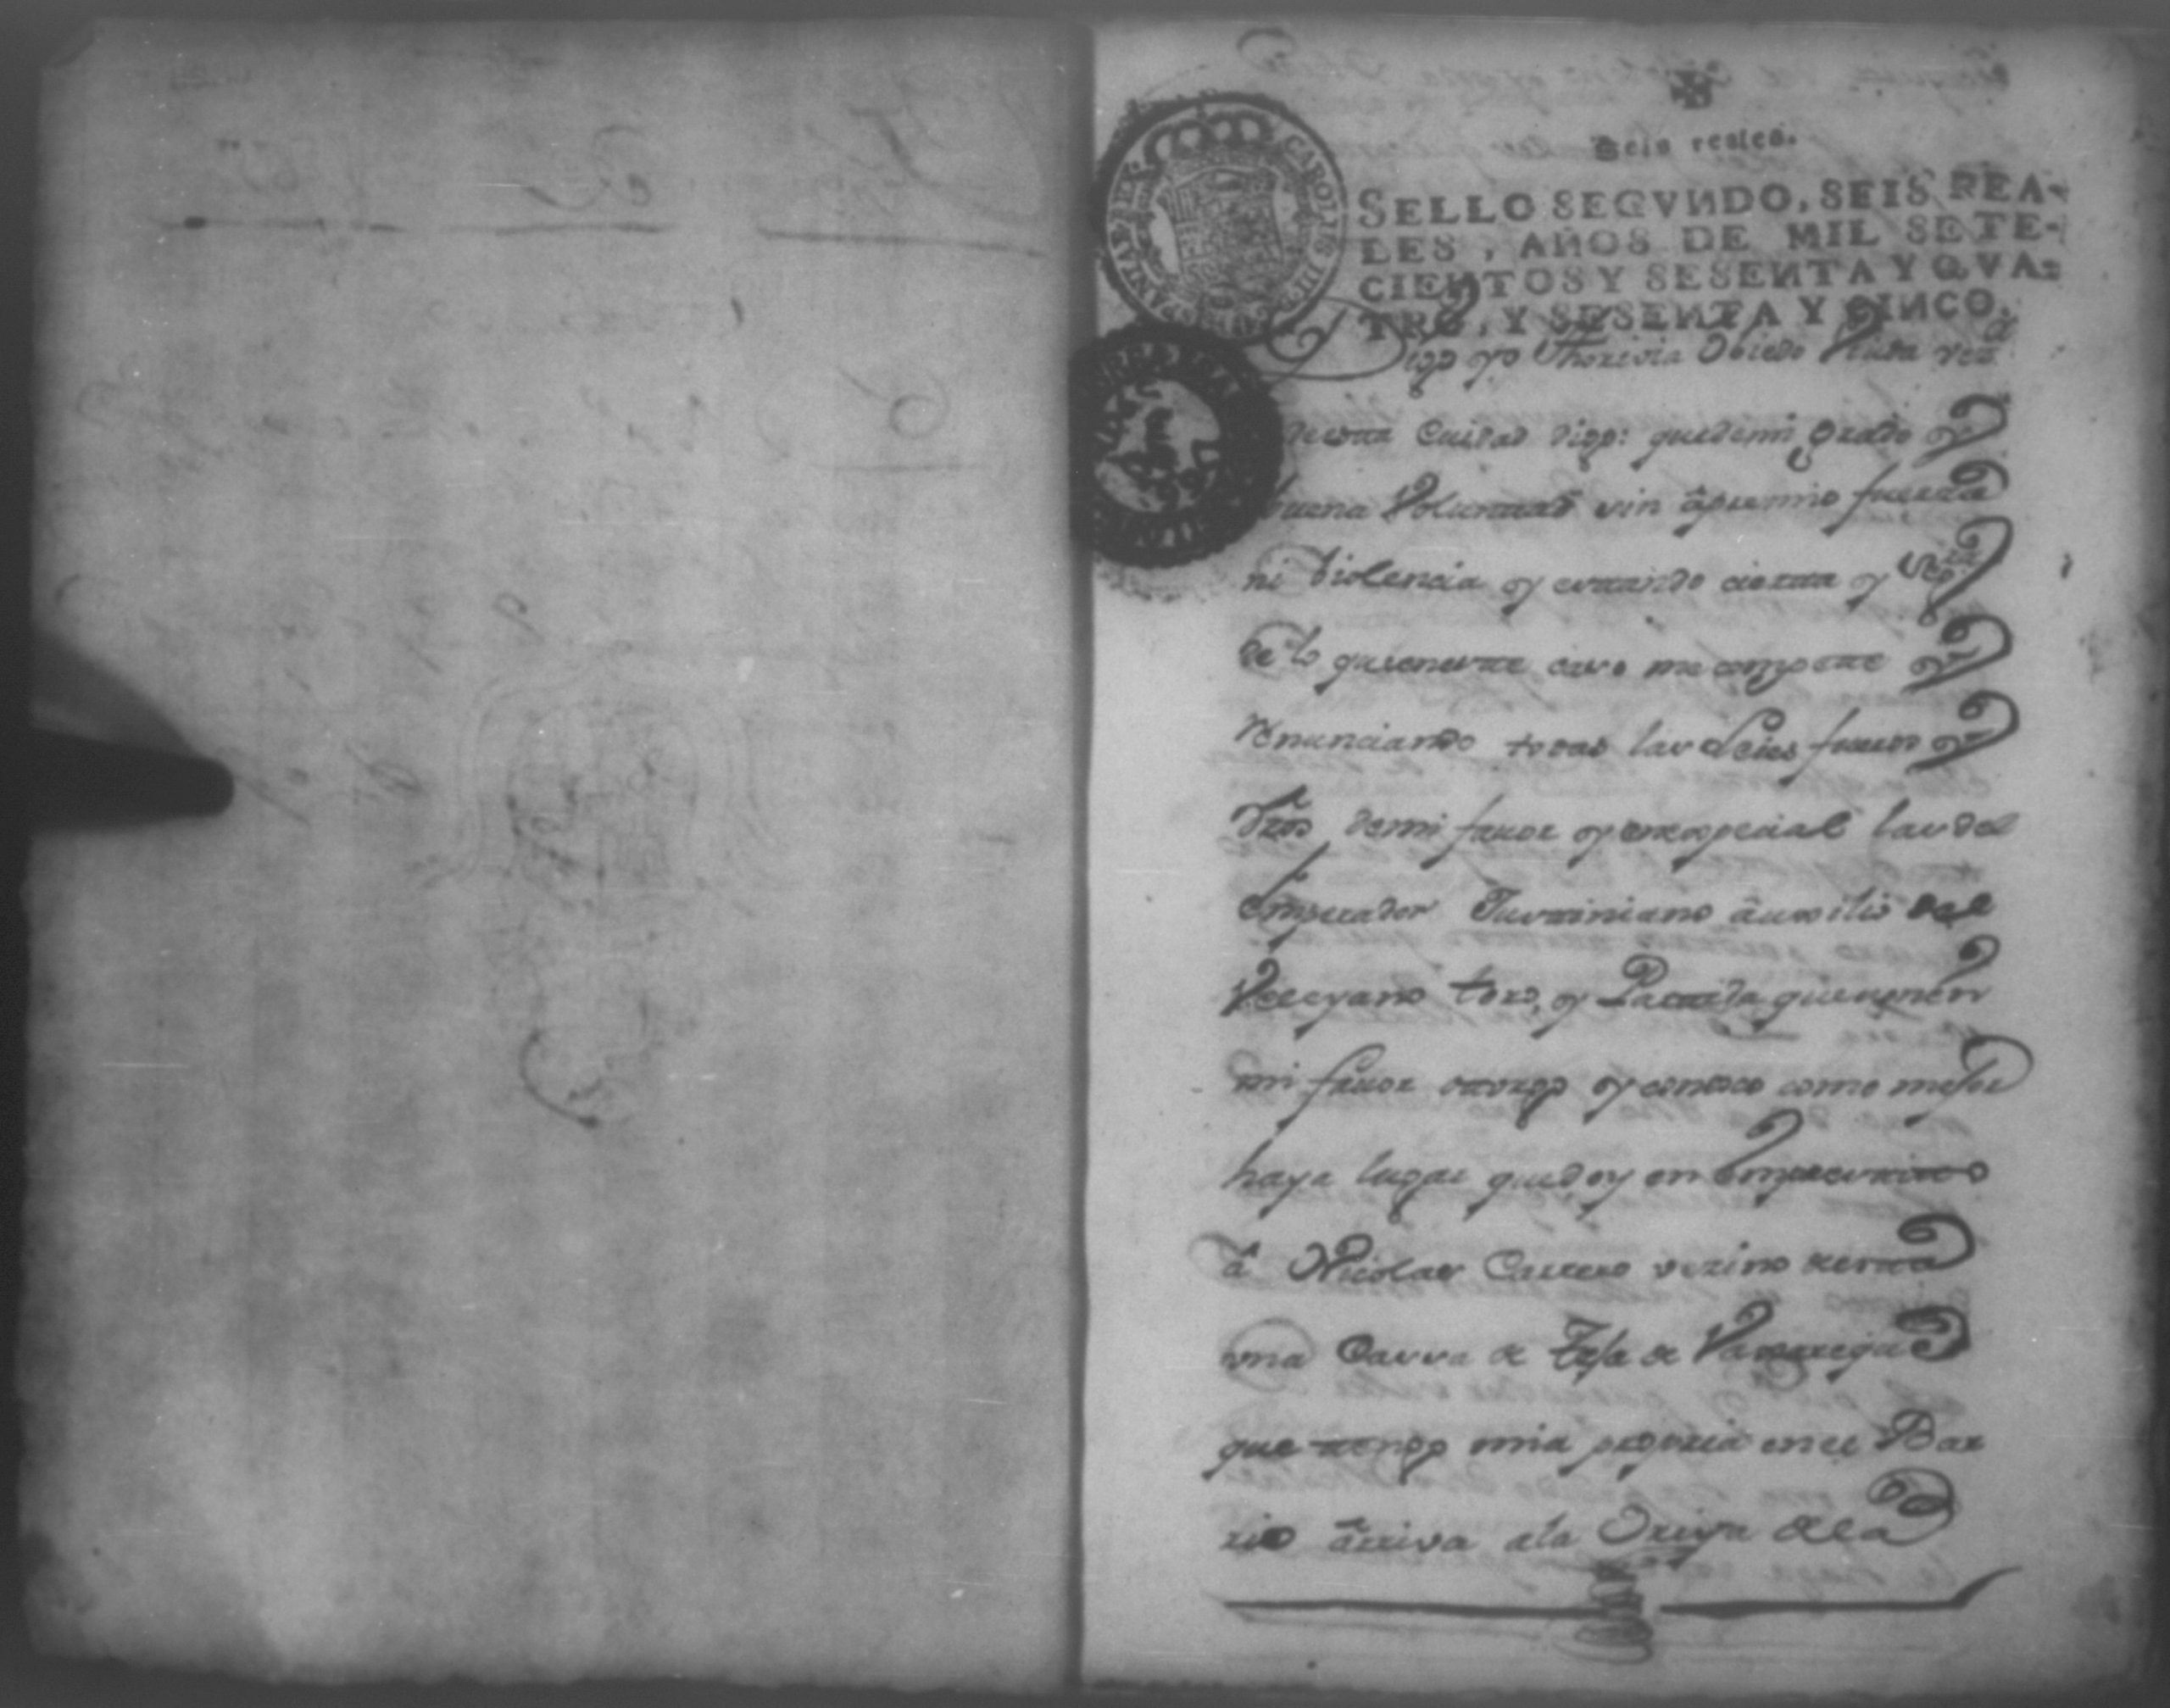 Seis reales.
SELLO SEGVNDO, SEIS REA-
LES, AÑOS DE MIL SETE-
CIENTOS Y SESENTA Y QVA-
TRO, Y SESENTA Y CINCO.
CAROLUS III
Digo yo Thorivia Obiedo Viuda vez.ª
de esta Ciudad digo: que de mi Grado y
buena Voluntad sin âpremio fuerza
ni violencia y estando cierta y
de lo que en este caso me compete
renunciando todas las Leies fueros
drōs de mi favor y en especial las del
Emperador Justiniano âuxilio del
Veleyano toro, y Partida que son en
mi favor otorgo y conosco como mejor
haya lugar que doy en Empréstito
â Nicolas Carrero vezino de esta
una Cassa de Teja de Vaxareque
que tengo mia propria en el Bar
rio ârriva a la Oriya de la